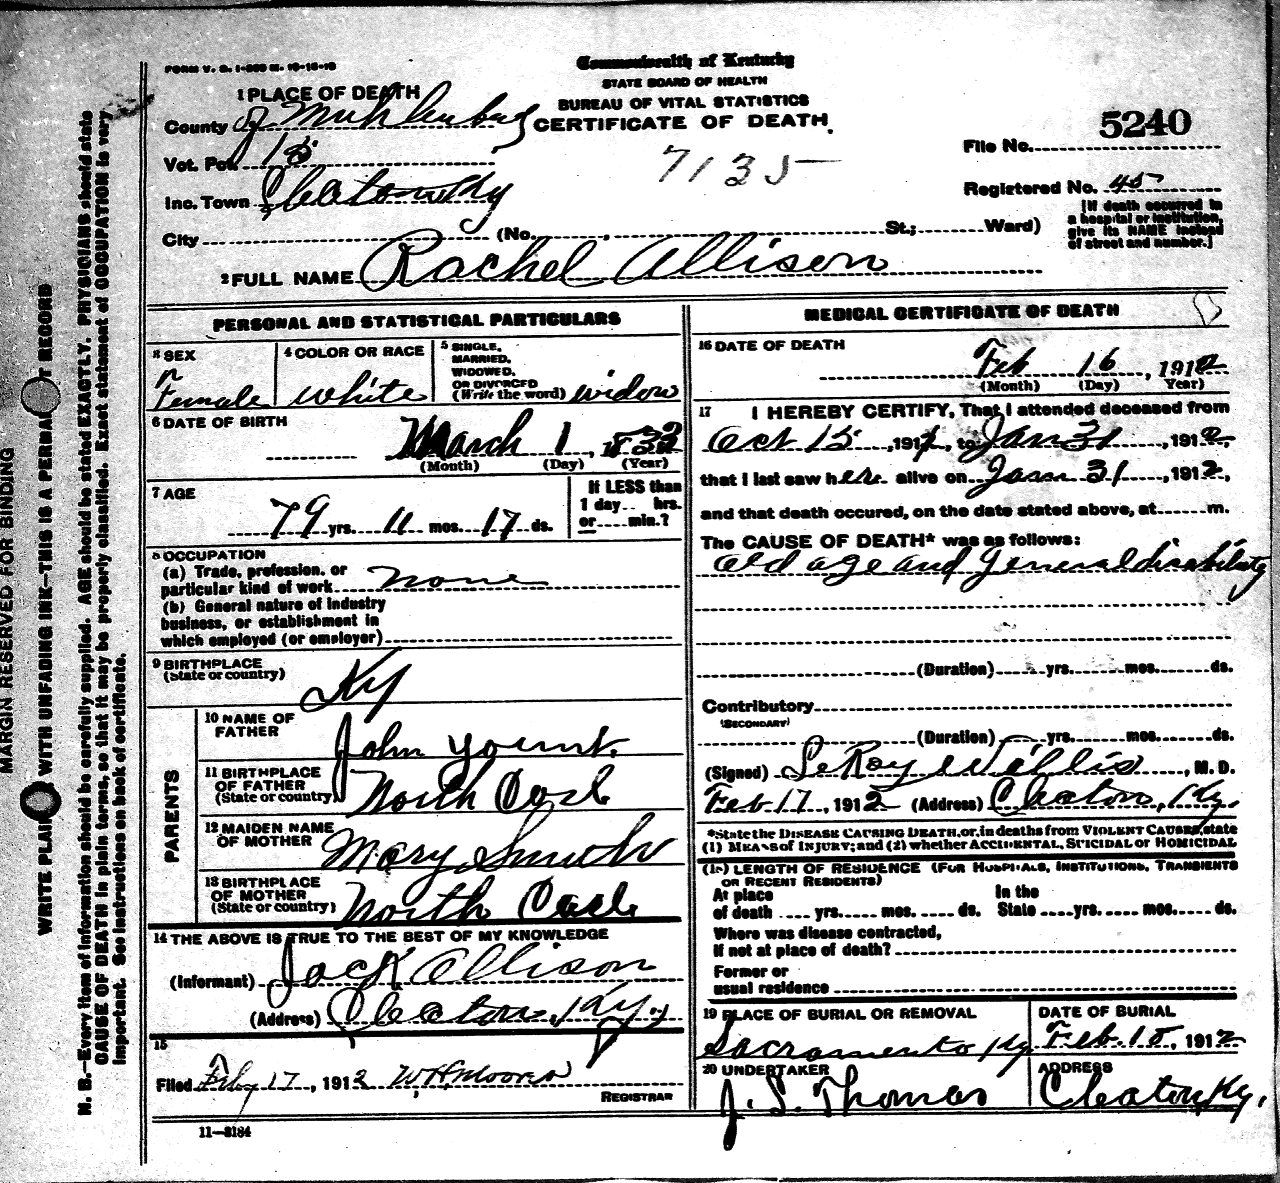 FORM V. S. 1-
Commonwealth of Kentucky
STATE BOARD OF HEALTH
BUREAU OF VITAL STATISTICS
CERTIFICATE OF DEATH.
1 PLACE OF DEATH
County of Muhlenburg
Vot. Pct 15
Inc. Town Cleaton Ky
City (No. , St.; Ward)
7135
5240
File No.
Registered No. 45
[If death occurred in a hospital or institution, give its NAME instead of street and number.]
2 FULL NAME Rachel Allison
PERSONAL AND STATISTICAL PARTICULARS
3 SEX
Female
4 COLOR OR RACE
white
5 SINGLE, MARRIED, WIDOWED, OR DIVORCED (Write the word) widow
6 DATE OF BIRTH
March 1, 1832
(Month) (Day) (Year)
7 AGE
79 yrs. 11 mos. 17 ds.
If LESS than 1 day hrs. or min.?
8 OCCUPATION
(a) Trade, profession, or particular kind of work none
(b) General nature of industry business, or establishment in which employed (or employer)
9 BIRTHPLACE (State or country)
Ky
PARENTS
10 NAME OF FATHER John Yount.
11 BIRTHPLACE OF FATHER (State or country) North Carl
12 MAIDEN NAME OF MOTHER Mary Smith
13 BIRTHPLACE OF MOTHER (State or country) North Carl
14 THE ABOVE IS TRUE TO THE BEST OF MY KNOWLEDGE
(Informant) Jack Allison
(Address) Cleaton, Ky.
15
Filed Feby 17, 1912 W H Moore
REGISTRAR
11—3184
MEDICAL CERTIFICATE OF DEATH
16 DATE OF DEATH
Feb 16, 1912
(Month) (Day) Year)
17 I HEREBY CERTIFY, That I attended deceased from
Oct 15, 1911, to Jan 31, 1912,
that I last saw her alive on Jan 31, 1912,
and that death occured, on the date stated above, at m.
The CAUSE OF DEATH* was as follows:
Old age and general disability
(Duration) yrs. mos. ds.
Contributory
(SECONDARY)
(Duration) yrs. mos. ds.
(Signed) LeRoy Willis, M. D.
Feb. 17, 1912 (Address) Cleaton, Ky.
*State the DISEASE CAUSING DEATH, or, in deaths from VIOLENT CAUSES, state
(1) MEANS of INJURY; and (2) whether ACCIDENTAL, SUICIDAL or HOMICIDAL
LENGTH OF RESIDENCE (FOR HOSPITALS, INSTITUTIONS, TRANSIENTS
OR RECENT RESIDENTS)
At place of death yrs. mos. ds. In the State yrs. mos. ds.
Where was disease contracted,
If not at place of death?
Former or
usual residence
19 PLACE OF BURIAL OR REMOVAL
Sacramento Ky
DATE OF BURIAL
Feb. 18, 1912
20 UNDERTAKER
J. S. Thomas
ADDRESS
Cleaton, Ky.
MARGIN RESERVED FOR BINDING
WRITE PLAINLY WITH UNFADING INK—THIS IS A PERMANENT RECORD
N. B.—Every item of information should be carefully supplied. AGE should be stated EXACTLY. PHYSICIANS should state
CAUSE OF DEATH in plain terms, so that it may be properly classified. Exact statement of OCCUPATION is very
important. See instructions on back of certificate.